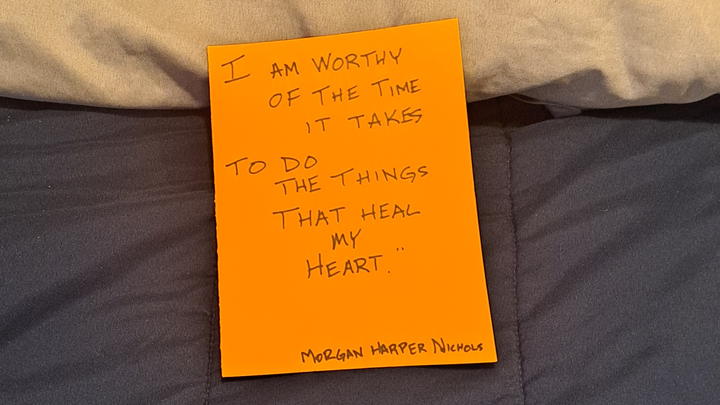 I AM WORTHY
OF THE TIME
IT TAKES
TO DO
THE THINGS
THAT HEAL
MY
HEART."
MORGAN HARPER NICHOLS